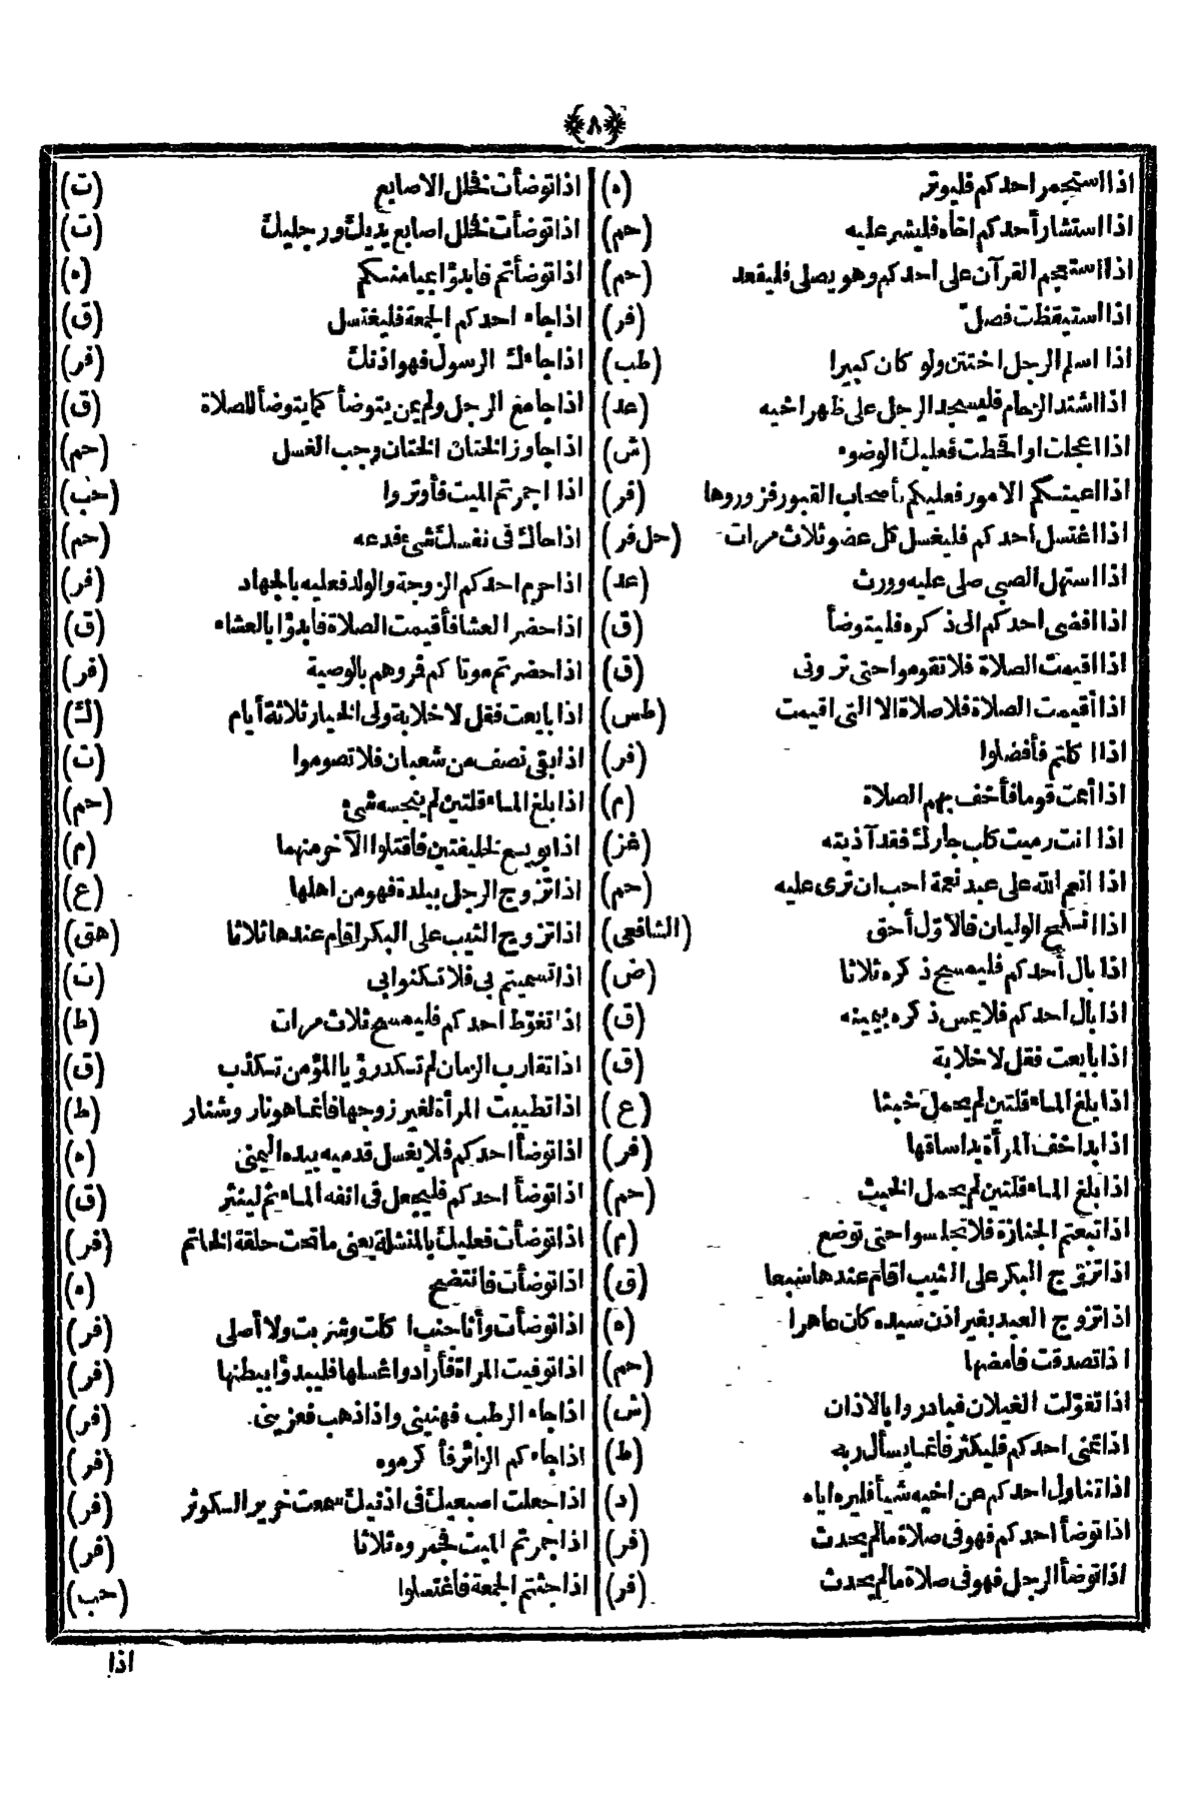 ﴿٨﴾
اذا استجمر احدكم فليوتر (ه)
اذا استشار أحدكم اخاه فليشر عليه (حم)
اذا استعجم القرآن على احدكم وهو يصلى فليقعد (حم)
اذا استيقظت فصل (فر)
اذا اسلم الرجل اختتن ولو كان كبيرا (طب)
اذا اشتد الزحام فليسجد الرجل على ظهر اخيه (عد)
اذا اعجلت او اقحطت فعليك الوضوء (ش)
اذا اعيتكم الامور فعليكم بأصحاب القبور فزوروها (فر)
اذا اغتسل احدكم فليغسل كل عضو ثلاث مرات (حل فر)
اذا استهل الصبى صلى عليه وورث (عد)
اذا افضى احدكم الى ذكره فليتوضأ (ق)
اذا اقيمت الصلاة فلا تقوموا حتى ترونى (ق)
اذا أقيمت الصلاة فلا صلاة الا التى اقيمت (طس)
اذا اكلتم فأفضلوا (فر)
اذا أممت قوما فأخف بهم الصلاة (م)
اذا انت رميت كلب جارك فقد آذيته (غز)
اذا انعم الله على عبد نعمة احب ان ترى عليه (حم)
اذا انكح الوليان فالاوّل أحق (الشافعى)
اذا بال أحدكم فليمسح ذكره ثلاثا (ض)
اذا بال احدكم فلا يمس ذكره بيمينه (ق)
اذا بايعت فقل لا خلابة (ق)
اذا بلغ الماء قلتين لم يحمل خبثا (ع)
اذا بدا خف المرأة بدا ساقها (فر)
اذا بلغ الماء قلتين لم يحمل الخبث (حم)
اذا تبعتم الجنازة فلا تجلسوا حتى توضع (م)
اذا تزوّج البكر على الثيب اقام عندها سبعا (ق)
اذا تزوج العبد بغير اذن سيده كان عاهرا (ه)
اذا تصدقت فأمضها (حم)
اذا تغوّلت الغيلان فبادروا بالاذان (ش)
اذا تمنى احدكم فليكثر فانما يسأل ربه (ط)
اذا تناول احدكم من اخيه شيأ فليره اياه (د)
اذا توضأ احدكم فهو فى صلاة مالم يحدث (فر)
اذا توضأ الرجل فهو فى صلاة مالم يحدث (فر)
اذا توضأت فخلل الاصابع (ت)
اذا توضأت فخلل اصابع يديك ورجليك (ت)
اذا توضأتم فابدؤا بميامنكم (ه)
اذا جاء احدكم الجمعة فليغتسل (ق)
اذا جاءك الرسول فهو اذنك (فر)
اذا جامع الرجل ولم يمن يتوضأ كما يتوضأ للصلاة (ق)
اذا جاوز الختان الختان وجب الغسل (حم)
اذا اجمرتم الميت فأوتروا (حب)
اذا حاك فى نفسك شىء فدعه (حم)
اذا حرم احدكم الزوجة والولد فعليه بالجهاد (فر)
اذا حضر العشا فأقيمت الصلاة فأبدؤا بالعشاء (ق)
اذا حضرتم موتاكم فمروهم بالوصية (فر)
اذا بايعت فقل لا خلابة ولى الخيار ثلاثة أيام (ك)
اذا بقى نصف من شعبان فلا تصوموا (ت)
اذا بلغ الماء قلتين لم ينجسه شئ (حم)
اذا بويع لخليفتين فأقتلوا الآخر منهما (م)
اذا تزوج الرجل ببلدة فهو من اهلها (ع)
اذا تزوج الثيب على البكر اقام عندها ثلاثا (هق)
اذا تسميتم بى فلا تكنوا بى (ت)
اذا تغوّط احدكم فليمسح ثلاث مرات (ط)
اذا تقارب الزمان لم تكد رؤيا المؤمن تكذب (ق)
اذا تطيبت المرأة لغير زوجها فانما هو نار وشنار (ط)
اذا توضأ احدكم فلا يغسل قدميه بيده اليمنى (ه)
اذا توضأ احدكم فليجعل فى انفه الماء ثم لينثر (ق)
اذا توضأت فعليك بالمنشلة يعنى ما تحت حلقة الخاتم (فر)
اذا توضأت فانتضح (ه)
اذا توضأت وأنا جنب اكلت وشربت ولا أصلى (فر)
اذا توفيت المراة فأرادوا غسلها فليبدؤا ببطنها (فر)
اذا جاء الرطب فهنينى واذا ذهب فعزينى (فر)
اذا جاءكم الزائر فأكرموه (فر)
اذا جعلت اصبعيك فى اذنيك سمعت خرير السكوثر (فر)
اذا جمرتم الميت فجمروه ثلاثا (فر)
اذا جئتم الجمعة فأغتسلوا (حب)
اذا